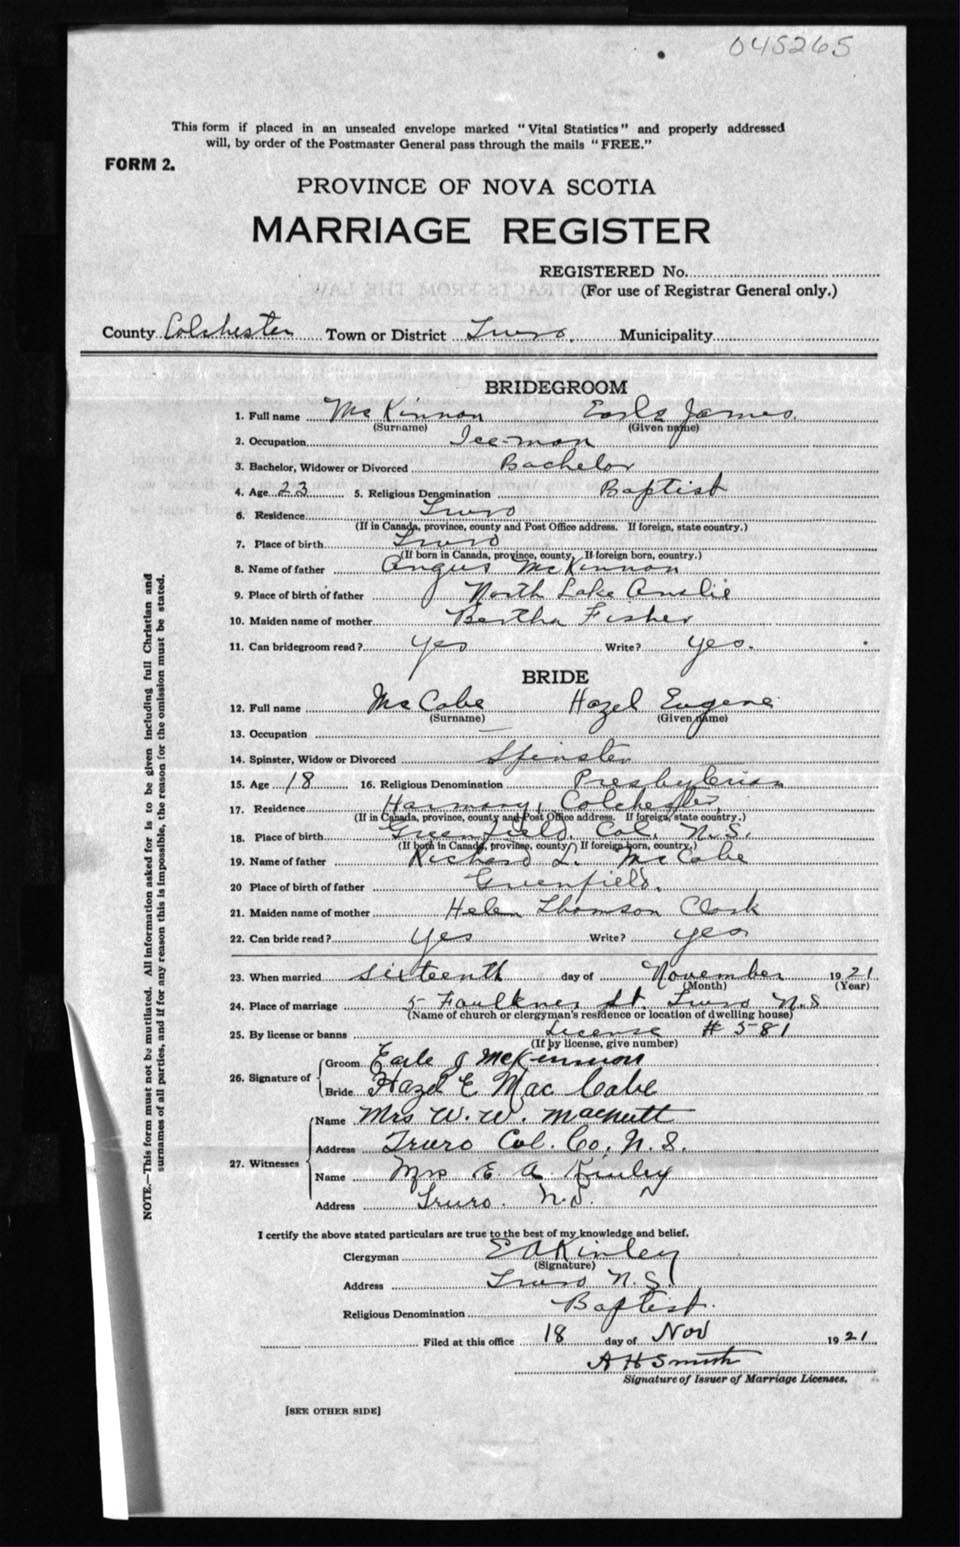 045265
This form if placed in an unsealed envelope marked "Vital Statistics" and properly addressed
will, by order of the Postmaster General pass through the mails "FREE."
FORM 2.
PROVINCE OF NOVA SCOTIA
MARRIAGE REGISTER
REGISTERED No.
(For use of Registrar General only.)
County Colchester Town or District Truro. Municipality
BRIDEGROOM
1. Full name McKinnon Earle James.
(Surname) (Given name)
2. Occupation Ice-man
3. Bachelor, Widower or Divorced Bachelor
4. Age 23 5. Religious Denomination Baptist
6. Residence Truro
(If in Canada, province, county and Post Office address. If foreign, state country.)
7. Place of birth Truro
(If born in Canada, province, county, If foreign born, country.)
8. Name of father Angus McKinnon
9. Place of birth of father North Lake Ainslie
10. Maiden name of mother Bertha Fisher
11. Can bridegroom read? yes Write? yes.
BRIDE
12. Full name McCabe Hazel Eugene
(Surname) (Given name)
13. Occupation —
14. Spinster, Widow or Divorced Spinster
15. Age 18 16. Religious Denomination Presbyterian
17. Residence Harmony, Colchester,
(If in Canada, province, county and Post Office address. If foreign, state country.)
18. Place of birth Greenfield. Col. N.S.
(If born in Canada, province, county If foreign born, country.)
19. Name of father Richard L. McCabe
20 Place of birth of father Greenfield.
21. Maiden name of mother Helen Thomson Clark
22. Can bride read? yes Write? yes
23. When married sixteenth day of November 1921
(Month) (Year)
24. Place of marriage 5 Faulkner St. Truro N.S
(Name of church or clergyman's residence or location of dwelling house)
25. By license or banns License # 581
(If by license, give number)
26. Signature of Groom Earle J McKinnon
Bride Hazel E MacCabe
27. Witnesses Name Mrs W. W. Macnutt
Address Truro Col. Co, N. S.
Name Mrs E. A Kinley
Address Truro. N.S.
I certify the above stated particulars are true to the best of my knowledge and belief.
Clergyman E A Kinley
(Signature)
Address Truro N.S.
Religious Denomination Baptist.
Filed at this office 18 day of Nov 1921
A H Smith
Signature of Issuer of Marriage Licenses.
[SEE OTHER SIDE]
NOTE.—This form must not be mutilated. All information asked for is to be given including full Christian and
surnames of all parties, and if for any reason this is impossible, the reason for the omission must be stated.